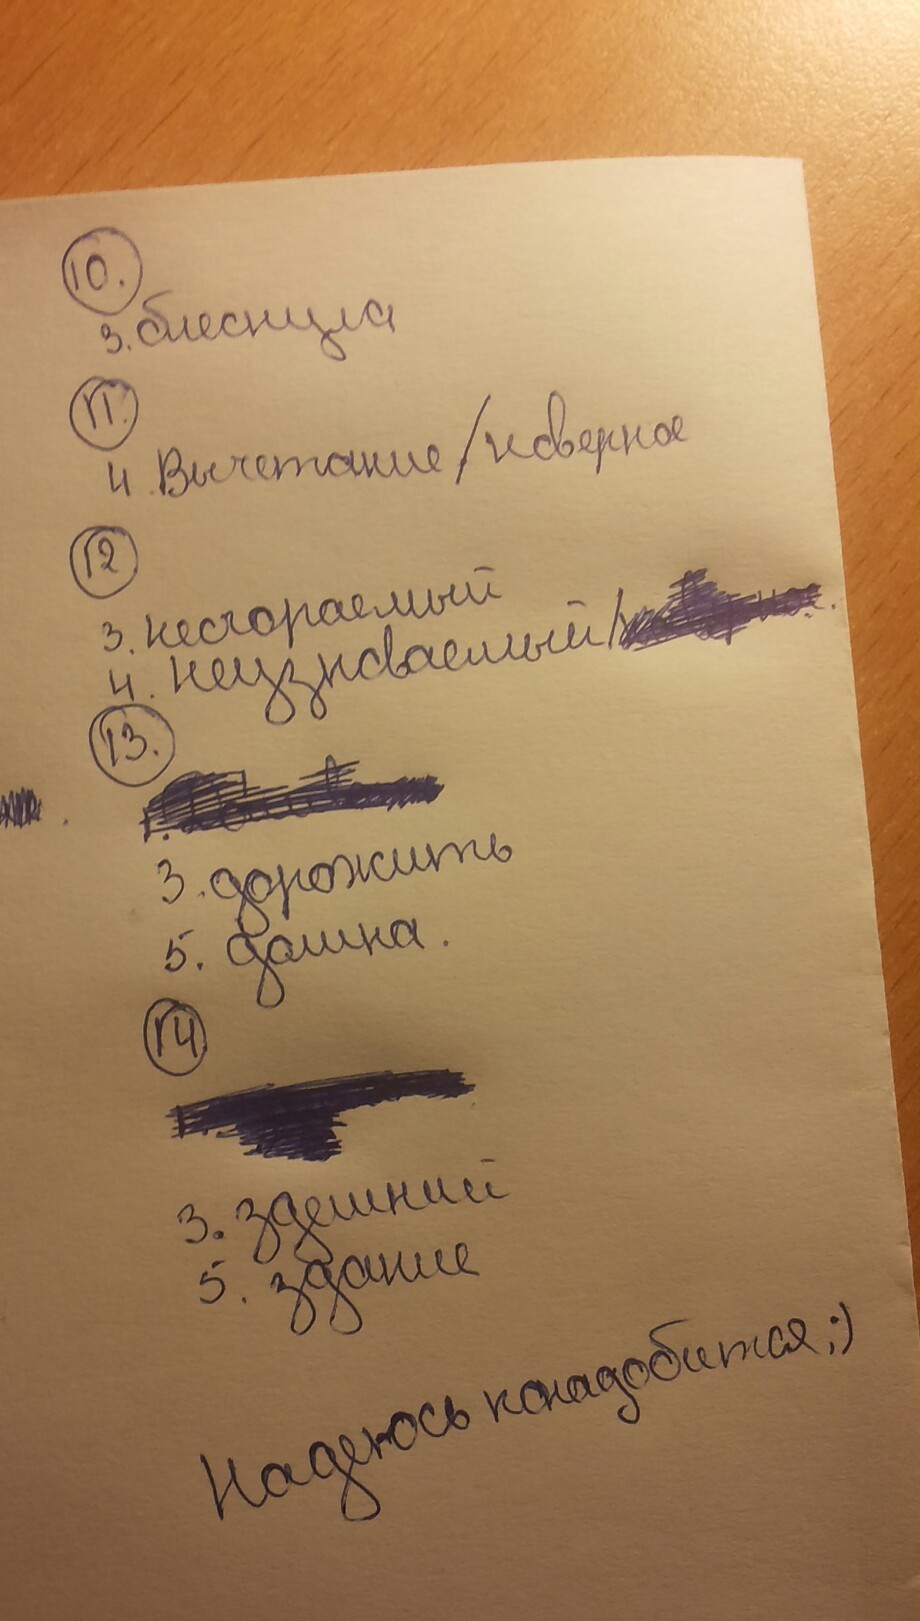 10.
3. блеснула
11.
4. Вычетание/наверное
12
3. несгораемый
4. Неузноваемый/
13.
3. дорожить
5. домна.
14
3. здешний
5. здание
Надеюсь понадобится ;)